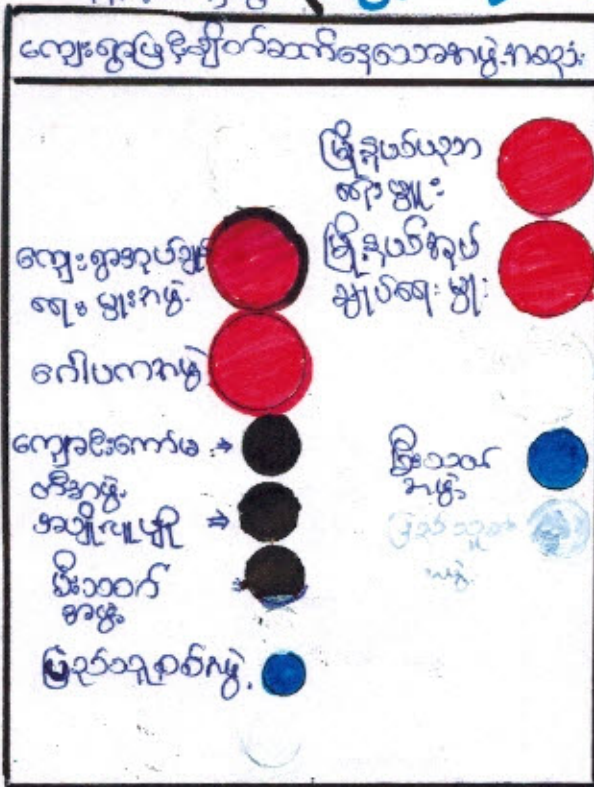 ကျေးရွာဖြင့်ချိတ်ဆက်နေသောအဖွဲ့အစည်း
မြို့နယ်
ရေးမှူး
မြို့နယ်အုပ်
ချုပ်ရေးမှူး
ကျေးရွာအုပ်ချုပ်
ရေးမှူးအဖွဲ့
ဂေါပကအဖွဲ့
ကျောင်းကော်မ →
တီအဖွဲ့
⇒
မီးသတ်
အဖွဲ့
ပြည်သူ့စစ်အဖွဲ့
မီးသတ်
အဖွဲ့
ပြည်သူ့စစ်
အဖွဲ့